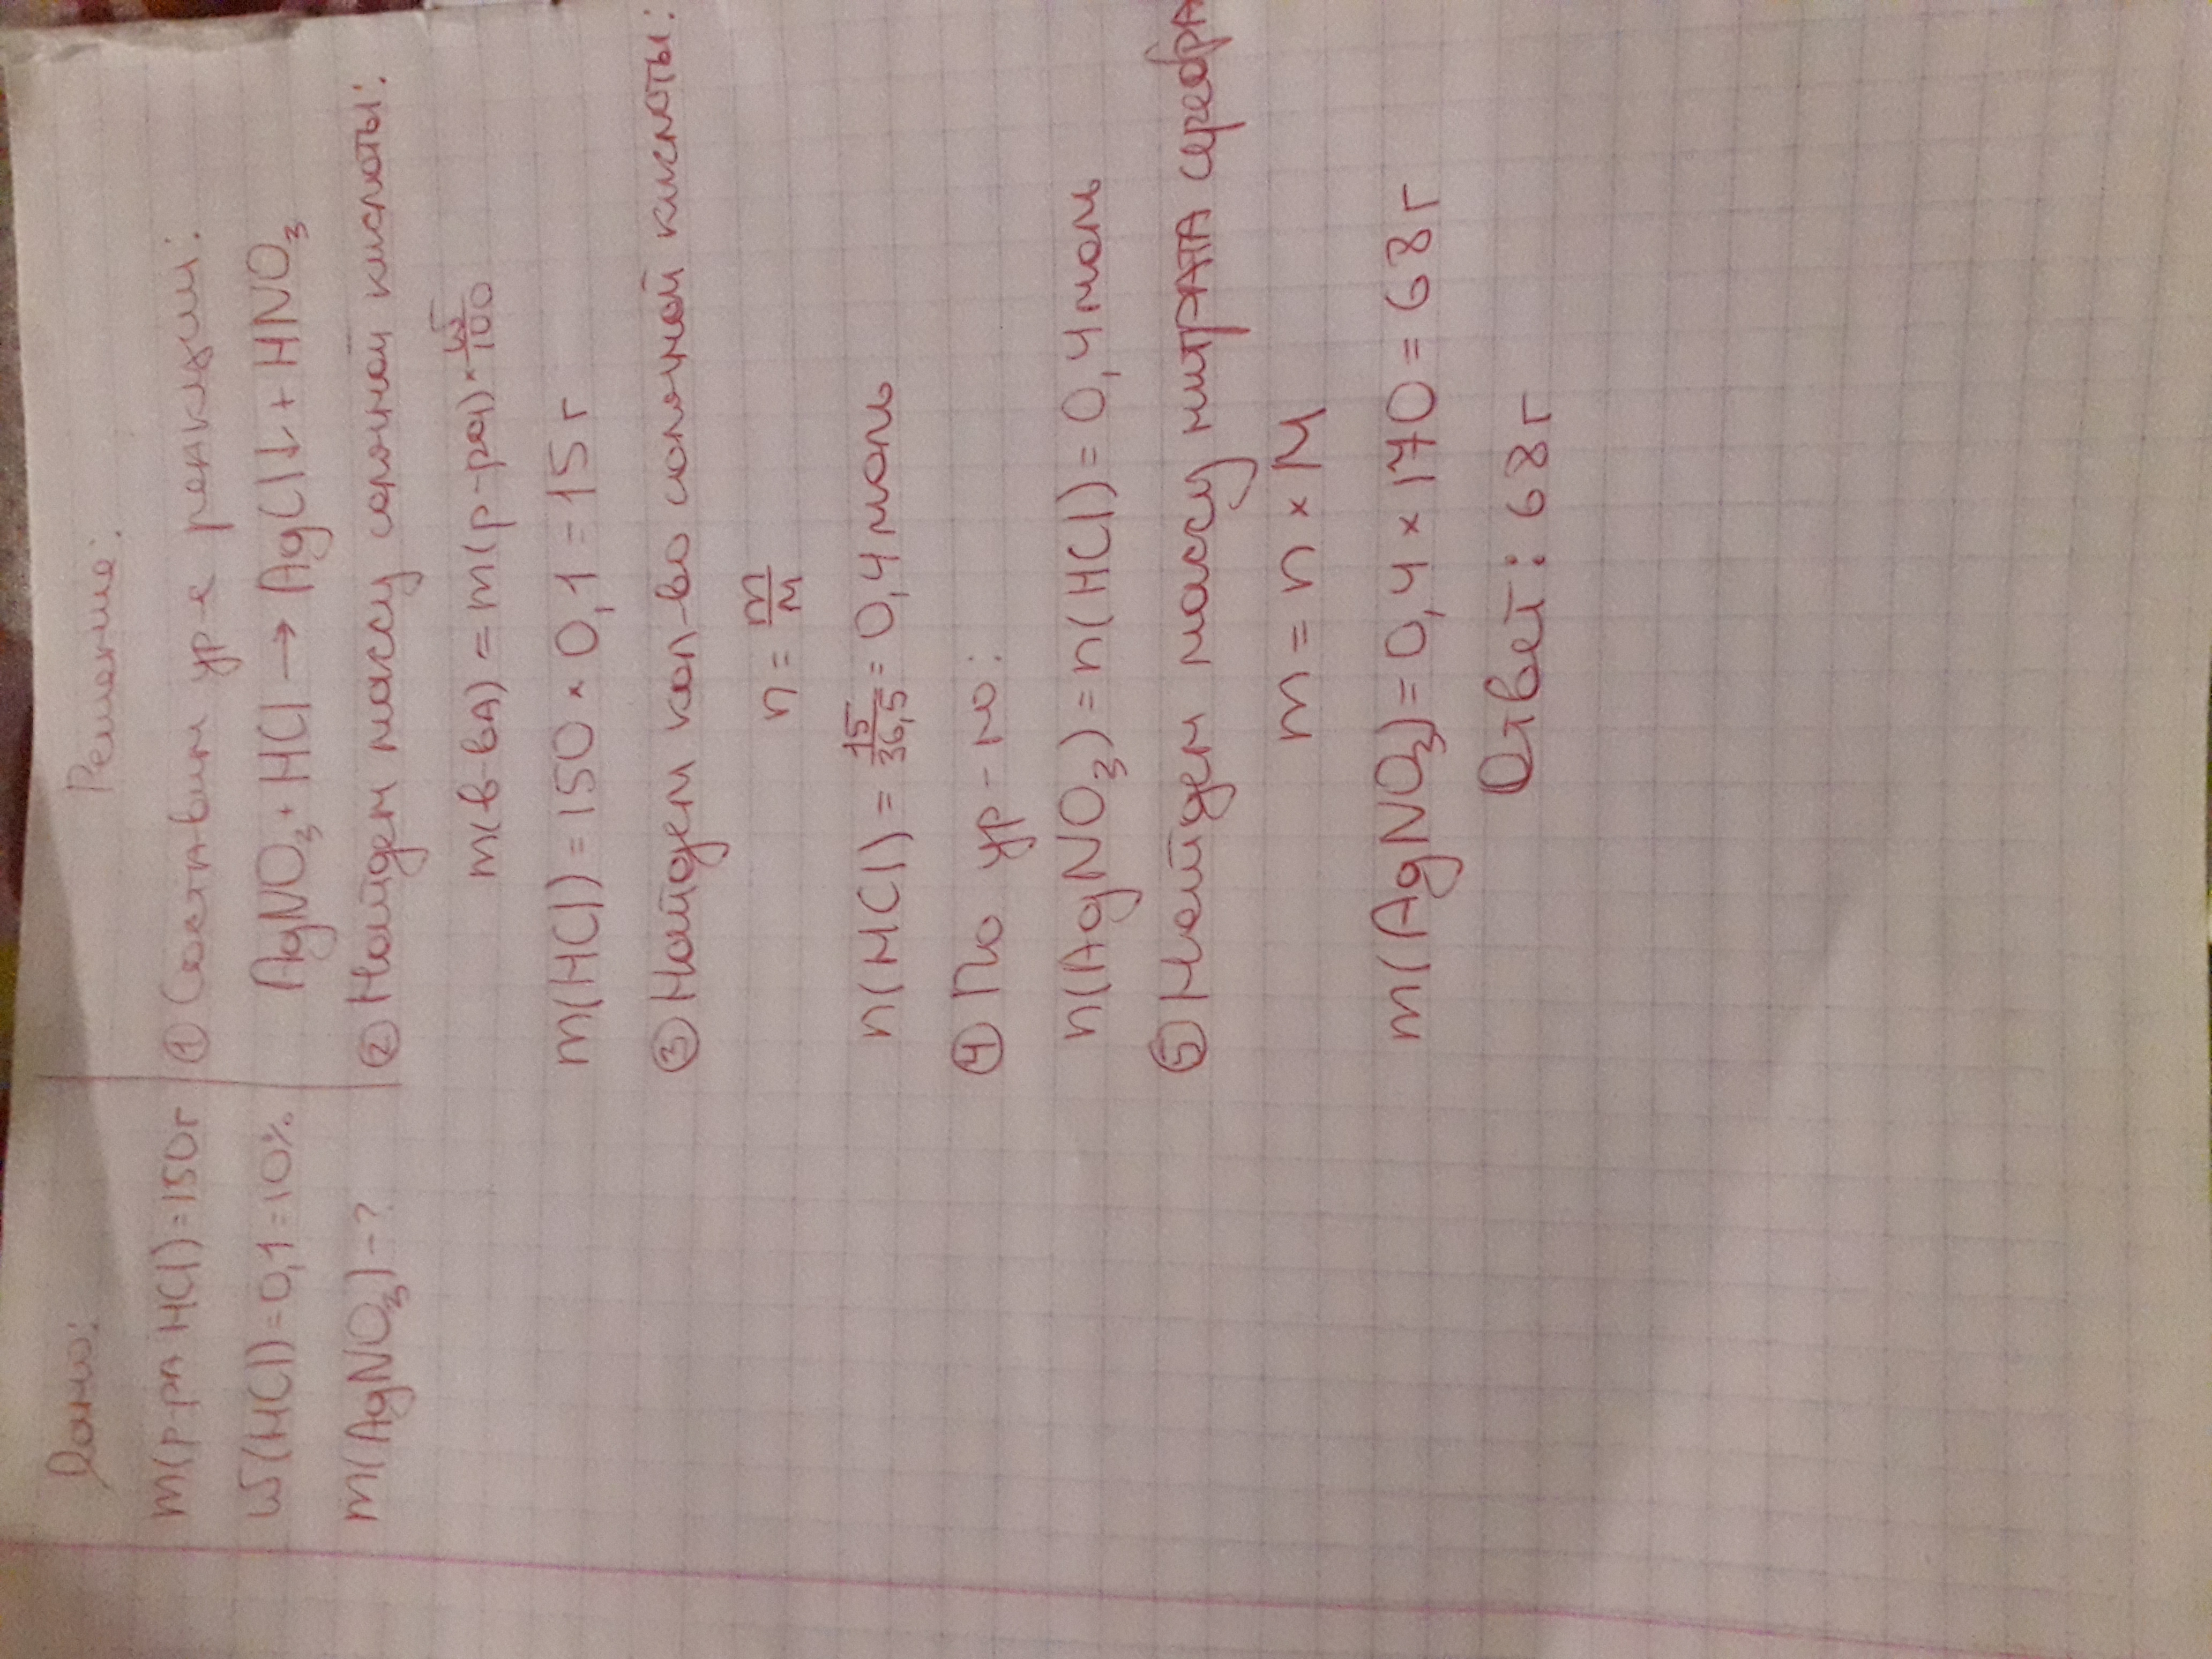 Дано:
m(р-ра HCl)=150г
ω(HCl)=0,1=10%
m(AgNO3)-?
Решение:
① Составим ур-е реакции:
AgNO3+HCl→AgCl↓+HNO3
② Найдем массу соляной кислоты:
m(в-ва)=m(р-ра)×ω/100
m(HCl)=150×0,1=15г
③ Найдем кол-во соляной кислоты:
n=m/M
n(HCl)=15/36,5=0,4моль
④ По ур-ю:
n(AgNO3)=n(HCl)=0,4моль
⑤ Найдем массу нитрата серебра
m=n×M
m(AgNO3)=0,4×170=68г
Ответ: 68г